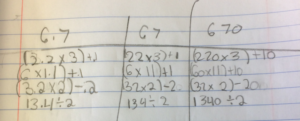 6.7 67 670
(2.2 x 3)+.1 (22x3)+1 (220x3)+10
(6x1.1)+.1 (6x11)+1 (60x11)+10
(3.2x2)-.2 (32x2)-2 (32x2)-20
13.4÷2 134÷2 1340÷2